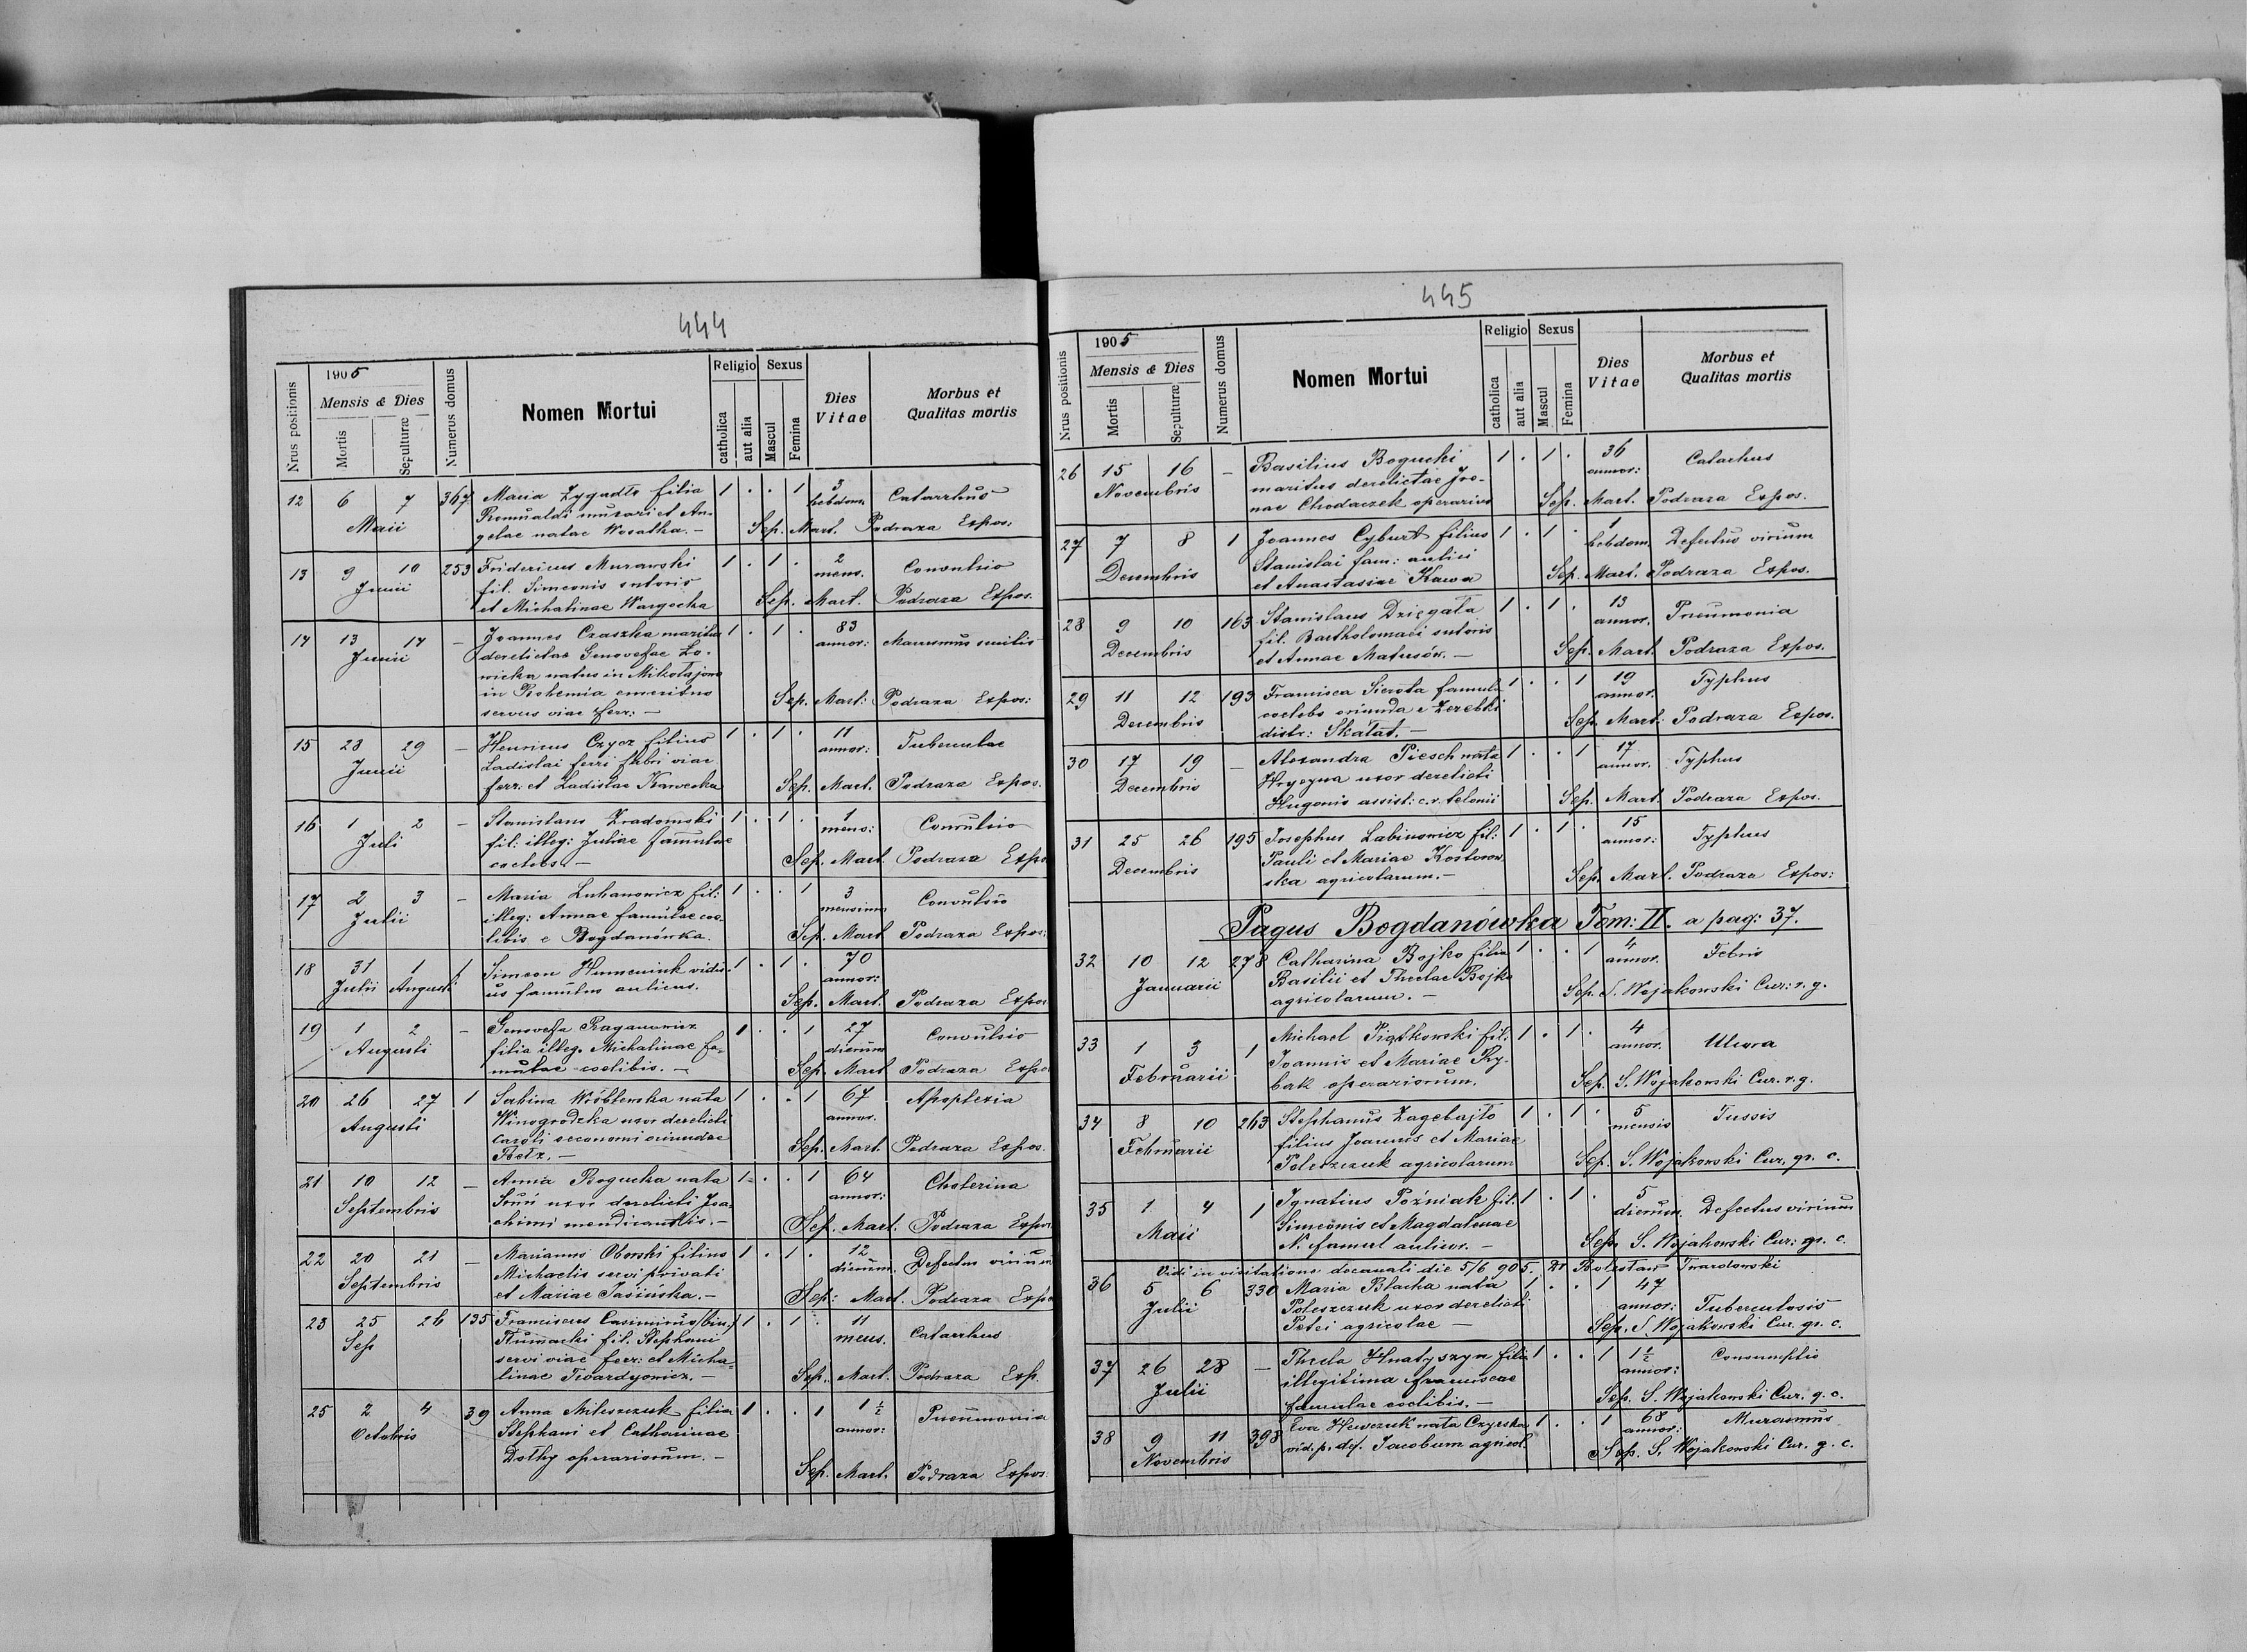 444
1905
Nrus positionis
Mensis & Dies
Mortis
Sepulturæ
Numerus domus
Nomen Mortui
Religio
catholica
aut alia
Sexus
Mascul
Femina
Dies Vitae
Morbus et Qualitas mortis
12 6 7 367 Maria Zygadło filia 1 . . 1 3 hebdom. Catarrhus
Maii Romualdi murari et An-
gelae natae Wosatka. — Sep. Mart. Podraza Expos:
13 9 10 253 Fridericus Murawski 1 . 1 . 2 mens. Convulsio
Junii fil. Simeonis sutoris
et Michalinae Wargocka Sep. Mart. Podraza Expos.
14 13 14 — Joannes Czaszka maritus 1 . 1 . 83 annor: Marasmus senilis
Junii derelictae Genovefae Ło-
wicka natus in Mikołajow
in Bohemia emeritus Sep. Mart: Podraza Expos:
servus viae ferr: —
15 28 29 — Henricus Czycz filius 1 . 1 . 11 annor: Tuberculae
Junii Ladislai ferri fabri viae
ferr: et Ladislae Kawecka Sep. Mart. Podraza Expos.
16 1 2 — Stanislaus Zradomski 1 . 1 . 1 mens: Convulsio
Juli fil: illeg: Juliae famulae
coelebs. — Sep. Mart. Podraza Expo
17 2 3 — Maria Luhanowicz fil: 1 . . 1 3 mensium Convulsio
Julii illeg: Annae famulae coe-
libis e Bogdanówka. Sep. Mart Podraza Expos:
18 31 1 1 Simeon Humeniuk vidu- 1 . 1 . 70 annor:
Julii Augusti us famulus aulicus. Sep. Mart. Podraza Expos
19 1 2 — Genovefa Raganowicz 1 . . 1 27 dierum Convulsio
Augusti filia illeg. Michalinae fa-
mulae coelibis. — Sep. Mart Podraza Expo
20 26 27 1 Sabina Wróblewska nata 1 . . 1 67 annor. Apoplexia
Augusti Winogrodzka uxor derelicti
Caroli oeconomi oriundae Sep. Mart. Podraza Expos.
Bełz. —
21 10 12 — Anna Bogucka nata 1 . . 1 64 annor: Cholerina
Septembris uxor derelicti Joa-
chimi mendicantis. — Sep. Mart. Podraza Expos
22 20 21 — Marianus Oborski filius 1 . 1 . 12 dierum. Defectus virium
Septembris Michaelis servi privati
et Mariae Jasińska. — Sep: Mart. Podraza Expo
23 25 26 135 Franciscus Casimirus /bin./ 1 . 1 . 11 mens. Catarrhus
Sep Tłumacki fil. Stephani
servi viae ferr: et Micha-
linae Twardyowicz. — Sep. Mart. Podraza Exp.
25 2 4 39 Anna Mileszczuk filia 1 . . 1 1½ annor: Pneumonia
Octobris Stephani et Catharinae
Dołhy operariorum. — Sep. Mart. Podraza Expos.
445
1905
Nrus positionis
Mensis & Dies
Mortis
Sepulturæ
Numerus domus
Nomen Mortui
Religio
catholica
aut alia
Sexus
Mascul
Femina
Dies Vitae
Morbus et Qualitas mortis
26 15 16 — Basilius Bogucki 1 . 1 . 36 annor: Catarhus
Novembris maritus derelictae Ire-
nae Chodaczek operarius Sep. Mart. Podraza Expos.
27 7 8 1 Joannes Cyburt filius 1 . 1 . 1 hebdom. Defectus virium
Decembris Stanislai fam: aulici
et Anastasiae Kawa Sep. Mart. Podraza Expos.
28 9 10 163 Stanislaus Dzięgała 1 . 1 . 13 annor. Pneumonia
Decembris fil. Bartholomaei sutoris
et Annae Matusów. — Sep. Mart. Podraza Expos.
29 11 12 193 Francisca Sierota famula 1 . . 1 19 annor. Typhus
Decembris coelebs oriunda e Zerebki
distr: Skałat. — Sep. Mart. Podraza Expos.
30 17 19 — Alexandra Piesch nata 1 . . 1 17 annor. Typhus
Decembris Hrycyna uxor derelicti
Hugonis assist: c. r. telonii Sep. Mart. Podraza Expos.
31 25 26 195 Josephus Labinowicz fil: 1 . 1 . 15 annor: Typhus
Decembris Pauli et Mariae Kostorow-
ska agricolarum. — Sep. Mart. Podraza Expos:
Pagus Bogdanówka Tom: II. a pag: 37.
32 10 12 278 Catharina Bojko filia 1 . . 1 4 annor. Febris
Januarii Basilii et Theclae Bojko
agricolarum. — Sep. S. Wojakowski Cur: r. g.
33 1 3 1 Michael Piątkowski fil. 1 . 1 . 4 annor. Ulcera
Februarii Joannis et Mariae Ry-
bak operariorum. Sep. S. Wojakowski Cur. r. g.
34 8 10 263 Stephanus Zagebajło 1 . 1 . 5 mensis Tussis
Februarii filius Joannis et Mariae
Poleszczuk agricolarum Sep. S. Wojakowski Cur. gr. c.
35 1 4 1 Ignatius Poźniak fil. 1 . 1 . 5 dierum. Defectus virium
Maii Simeonis et Magdalenae
N. famul aulicor. — Sep. S. Wojakowski Cur: gr. c.
Vidi in visitatione decanali die 5/6 905. Bolesław Twardowski
36 5 6 330 Maria Blacha nata 1 . . 1 47 annor: Tuberculosis
Julii Poleszczuk uxor derelicti
Petri agricolae — Sep. S. Wojakowski Cur. gr. c.
37 26 28 — Thecla Hnatyszyn filia 1 . . 1 1½ annor: Consumptio
Julii illegitima franciscae
famulae coelibis. — Sep. S. Wojakowski Cur. g. c.
38 9 11 398 Eva Hewczuk nata Czyrska 1 . . 1 68 annor: Marasmus
Novembris vid. p. def. Jacobum agricol. Sep. S. Wojakowski Cur. g. c.